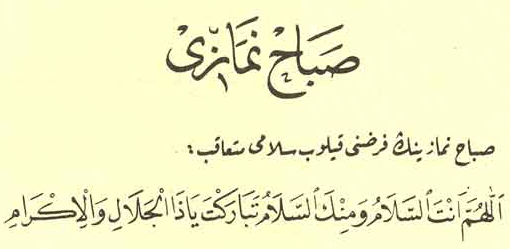 صَبَاحْ نَمَازِّى
صباح نمازينڭ فرضنى قيلوب سلامى متعاقب :
اَللّٰهُمَّ اَنْتَ السَّلَامُ وَمِنْكَ السَّلَامُ تَبَارَكْتَ يَاذَا الْجَلَالِ وَالْاِكْرَامِ